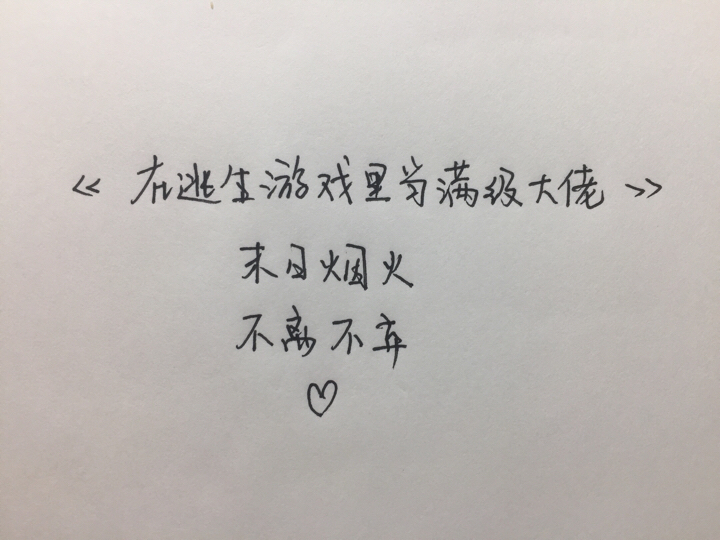 《在逃生游戏里当满级大佬》
末日烟火
不离不弃
♡